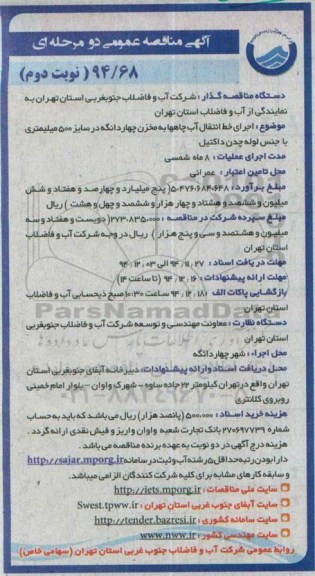 آگهی مناقصه عمومی دو مرحله ای
۹۴/۶۸ ( نوبت دوم)
دستگاه مناقصه گذار : شرکت آب و فاضلاب جنوبغربی استان تهران به
نمایندگی از آب و فاضلاب استان تهران
موضوع : اجرای خط انتقال آب چاهها به مخزن چهاردانگه در سایز ۵۰۰ میلیمتری
با جنس لوله چدن داکتیل
مدت اجرای عملیات : ۸ ماه شمسی
محل تامین اعتبار : عمرانی
مبلغ برآورد : ۵،۴۷۶،۶۸۴،۶۴۸( پنج میلیارد و چهارصد و هفتاد و شش
میلیون و ششصد و هشتاد و چهار هزار و ششصد و چهل و هشت ) ریال
مبلغ سپرده شرکت در مناقصه : ۲۷۳،۸۳۵،۰۰۰( دویست و هفتاد و سه
میلیون و هشتصد و سی و پنج هزار ) ریال در وجه شرکت آب و فاضلاب
استان تهران
مهلت دریافت اسناد : ۹۴،۱۱،۲۷ الی ۹۴،۱۲،۰۳
مهلت ارائه پیشنهادات : ۹۴،۱۲،۱۶ (تا ساعت ۱۴)
بازگشایی پاکات الف : ۹۴،۱۲،۱۸ ساعت ۱۰:۳۰ صبح ذیحسابی آب و فاضلاب
استان تهران
دستگاه نظارت : معاونت مهندسی و توسعه شرکت آب و فاضلاب جنوبغربی
استان تهران
محل اجراء : شهر چهاردانگه
محل دریافت اسناد و ارائه پیشنهادات: دبیرخانه آبفای جنوبغربی استان
تهران واقع در تهران کیلومتر ۲۲ جاده ساوه - شهرک واوان - بلوار امام خمینی
روبروی کلانتری
هزینه خرید اسناد : ۵۰۰،۰۰۰ (پانصد هزار) ریال می باشد که باید به حساب
شماره ۲۷۰۶۹۷۷۳۹ بانک تجارت شعبه واوان واریز و فیش نقدی ارائه گردد .
هزینه درج آگهی در دو نوبت به عهده برنده مناقصه می باشد .
دارا بودن رتبه حداقل ۵ رشته آب و ثبت در سامانه http://sajar.mporg.ir
و سابقه کار های مشابه برای کلیه شرکت کنندگان الزامی میباشد.
سایت ملی مناقصات : http://iets.mporg.ir
سایت آبفای جنوب غربی استان تهران : Swest.tpww.ir
سایت سامانه کشوری : http://tender.bazresi.ir
سایت مهندسی کشور : www.nww.ir
روابط عمومی شرکت آب و فاضلاب جنوب غربی استان تهران (سهامی خاص)
ParsNamadData